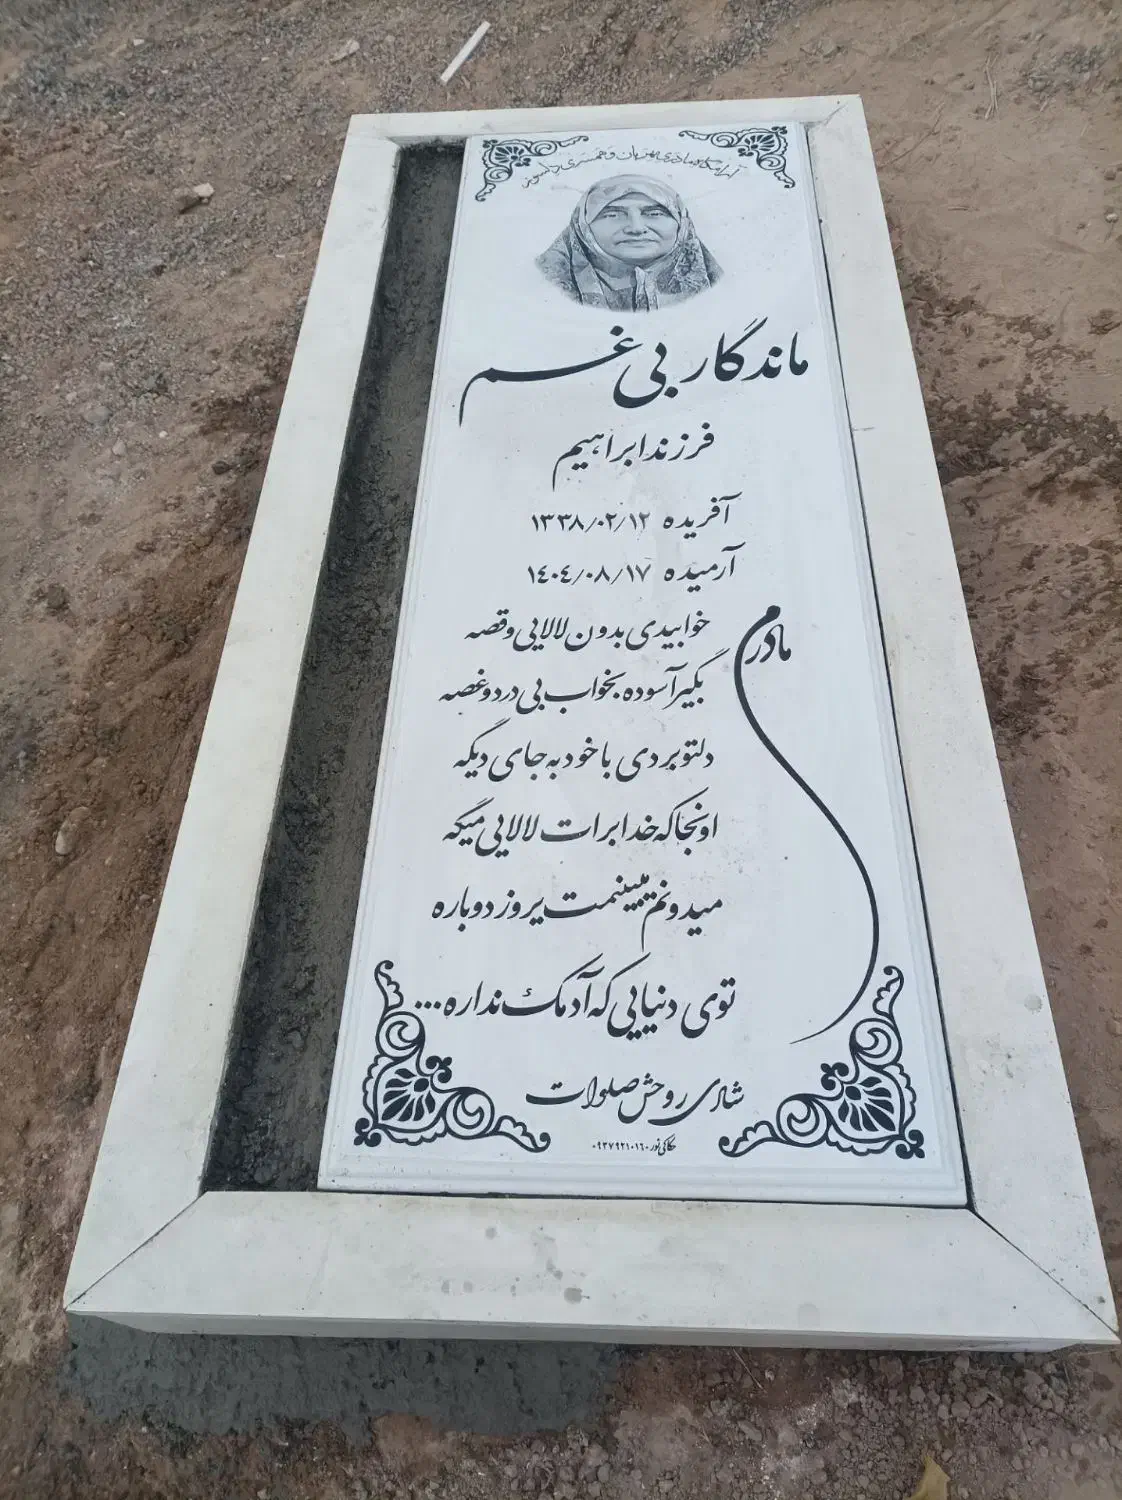 آرامگاه مادری مهربان و همسری دلسوز
ماندگار بی غم
فرزند ابراهیم
آفریده ۱۳۳۸/۰۲/۱۲
آرمیده ۱۴۰۴/۰۸/۱۷
مادرم
خوابیدی بدون لالایی و قصه
بگیر آسوده بخواب بی درد و غصه
دلتو بردی با خود به جای دیگه
اونجا که خدا برات لالایی میگه
میدونم میبینمت یروز دوباره
توی دنیایی که آدمک نداره...
شادی روحش صلوات
حکاکی نور ۰۹۳۷۹۲۱۰۱۶۰